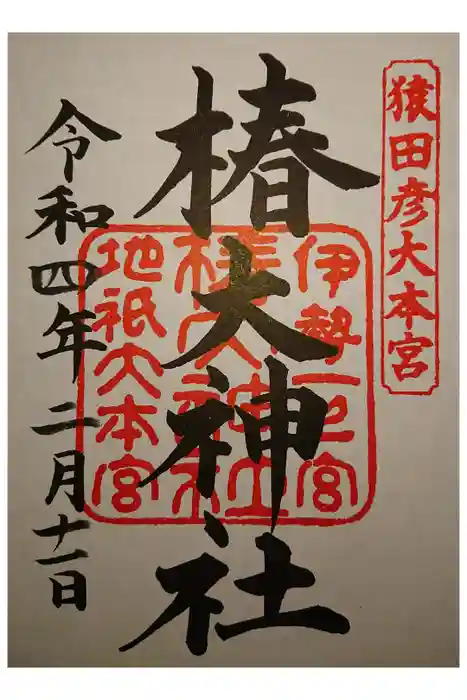 猿田彦大本宮
椿大神社
伊勢一之宮
椿大神社
地祇大本宮
令和四年二月十一日